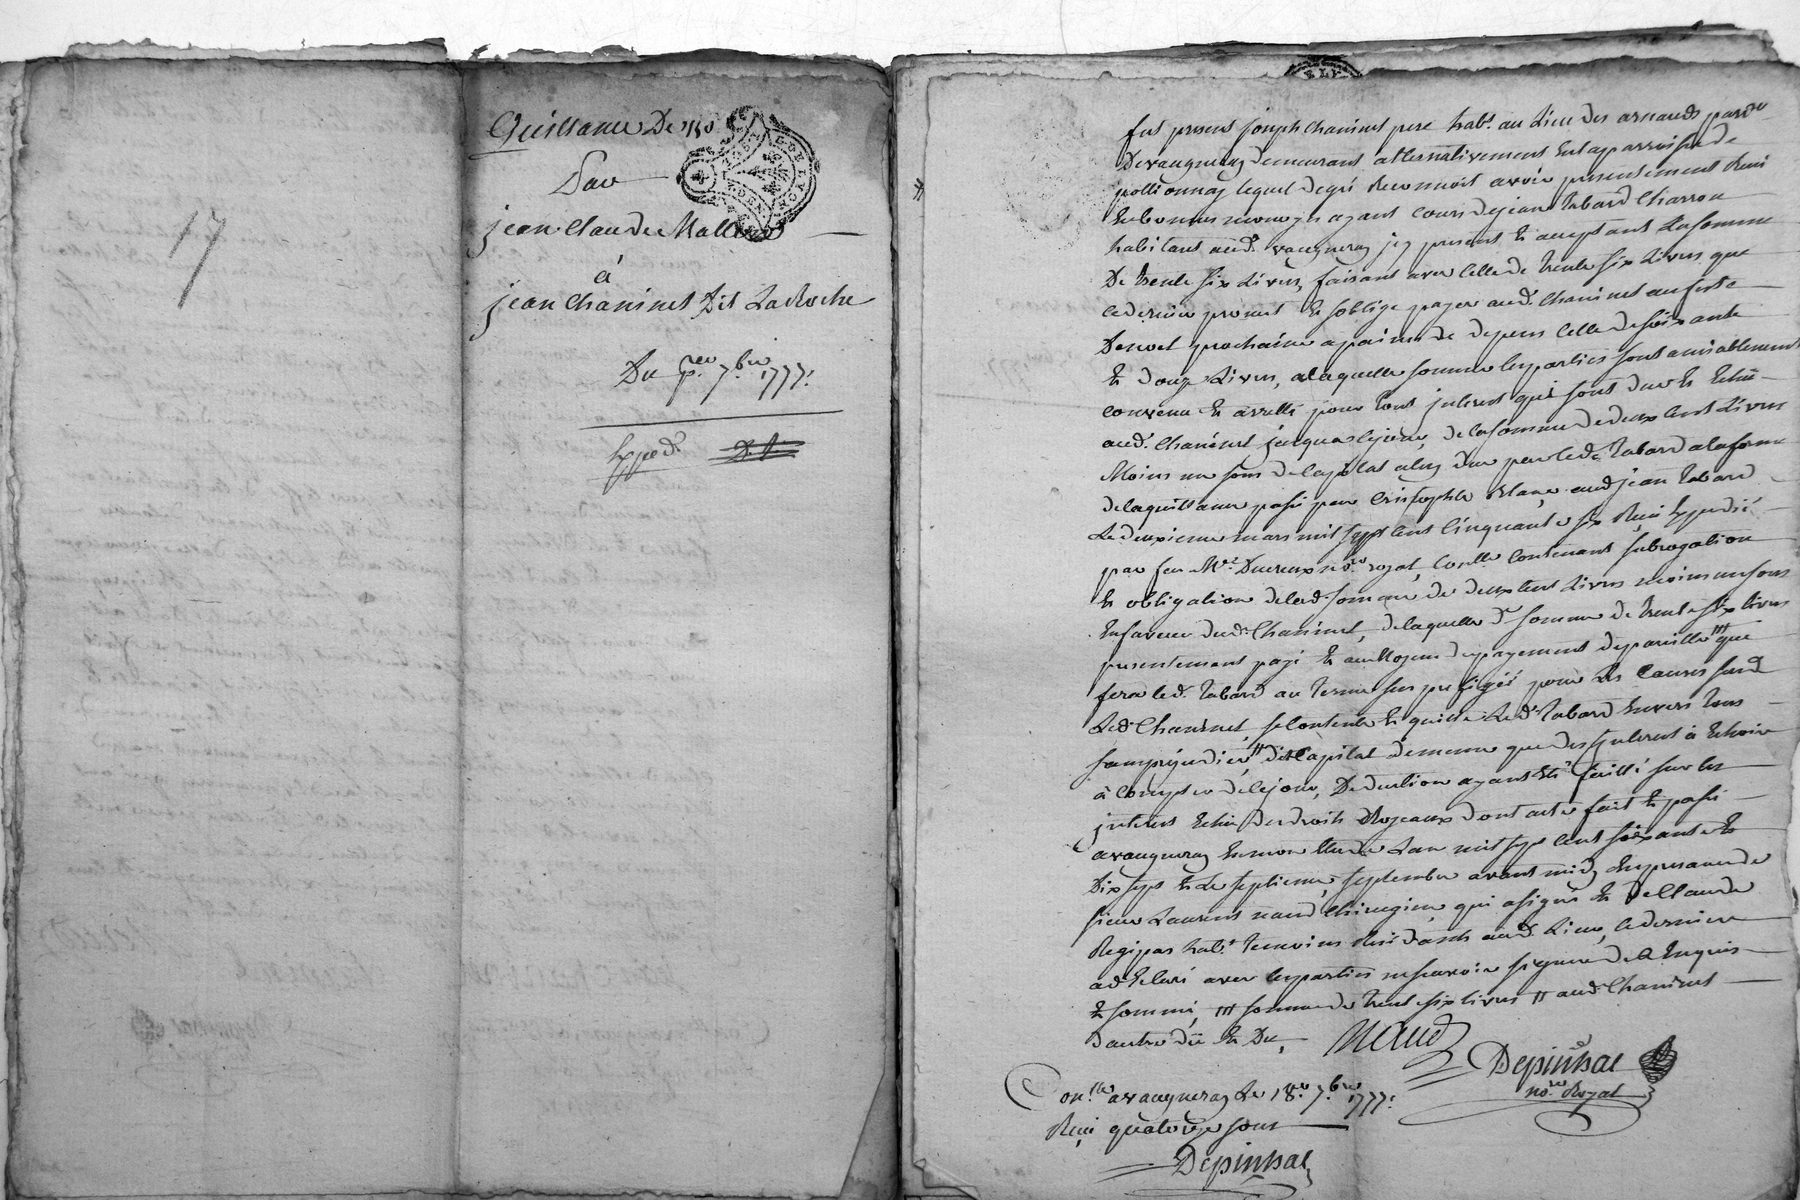 17
Quittance De 150
Par
jean Claude Mallen
à
jean Chaninet Dit LaRoche
Du p.er 7.bre 1777.
Expedé
fut present joseph Chaninet pere habt. au Lieu des arnauds parsse
Devaugneray demeurant alternativement En la parroisse de
pollionnay lequel degré Reconnoit avoir presentement Reçu
En bonnes monoyes ayant Cours de jean Tabard Charron
habitant aud. vaugneray jcy present Et acceptant La somme
De trente six Livres, faisant avec Celle de trente six Livres que
Ce dernier promet Et soblige payer aud. Chaninet au feste
De noel prochaine apeine de depens Celle de soixante
Et douze Livres, a laquelle somme les parties sont amiablement
convenu Et arretté pour tout jnterest qui sont due Et Echu
aud. Chaninet jusqua cejour, de la somme de deux Cent Livres
Moins un sous de Capital a luy due par led. Tabard a la forme
de la quittance passé par Cristophle aud. jean Tabard
Le deuxieme mars mil sept Cent Cinquante six Reçu Expedié
par feu Me. Ducreux nore. royal, Icelle Contenant subrogation
Et obligation de lad. somme de deux Cent Livres moins un sous
En faveur dud. Chaninet, de laquelle d. somme de trente six livres
presentement payé Et au moyen du payement de pareille que
fera led. Tabard au terme sus prefigée pour Les Causes susd.
Led. Chaninet, se Contente Et quitte Led. Tabard Envers tous
sans prejudice du Capital de meme que des jnterest à Echoir
à Compter de Ce jour, Deduction ayant Eté faitte sur les
jnterest Echu des droits Royeaux dont acte fait Et passé
a vaugneray En mon Etude Lan mil sept Cent soixante Et
Dix sept Et Le septieme septembre avant midy En presence de
sieur Laurent naud Chirurgien qui a signé Et De Claude
Regipas habt. temoins Residants aud. Lieu, Ce dernier
a declaré avec les parties ne scavoir signer de ce Enquis
Et sommé, somme de trente six livres aud. Chaninet
dautre du Et Du,
Naud
Depinhac
nore. Royal
Conllé a vaugneray Le 18.e 7.bre 1777.
Reçu quatorze sous
Depinhac